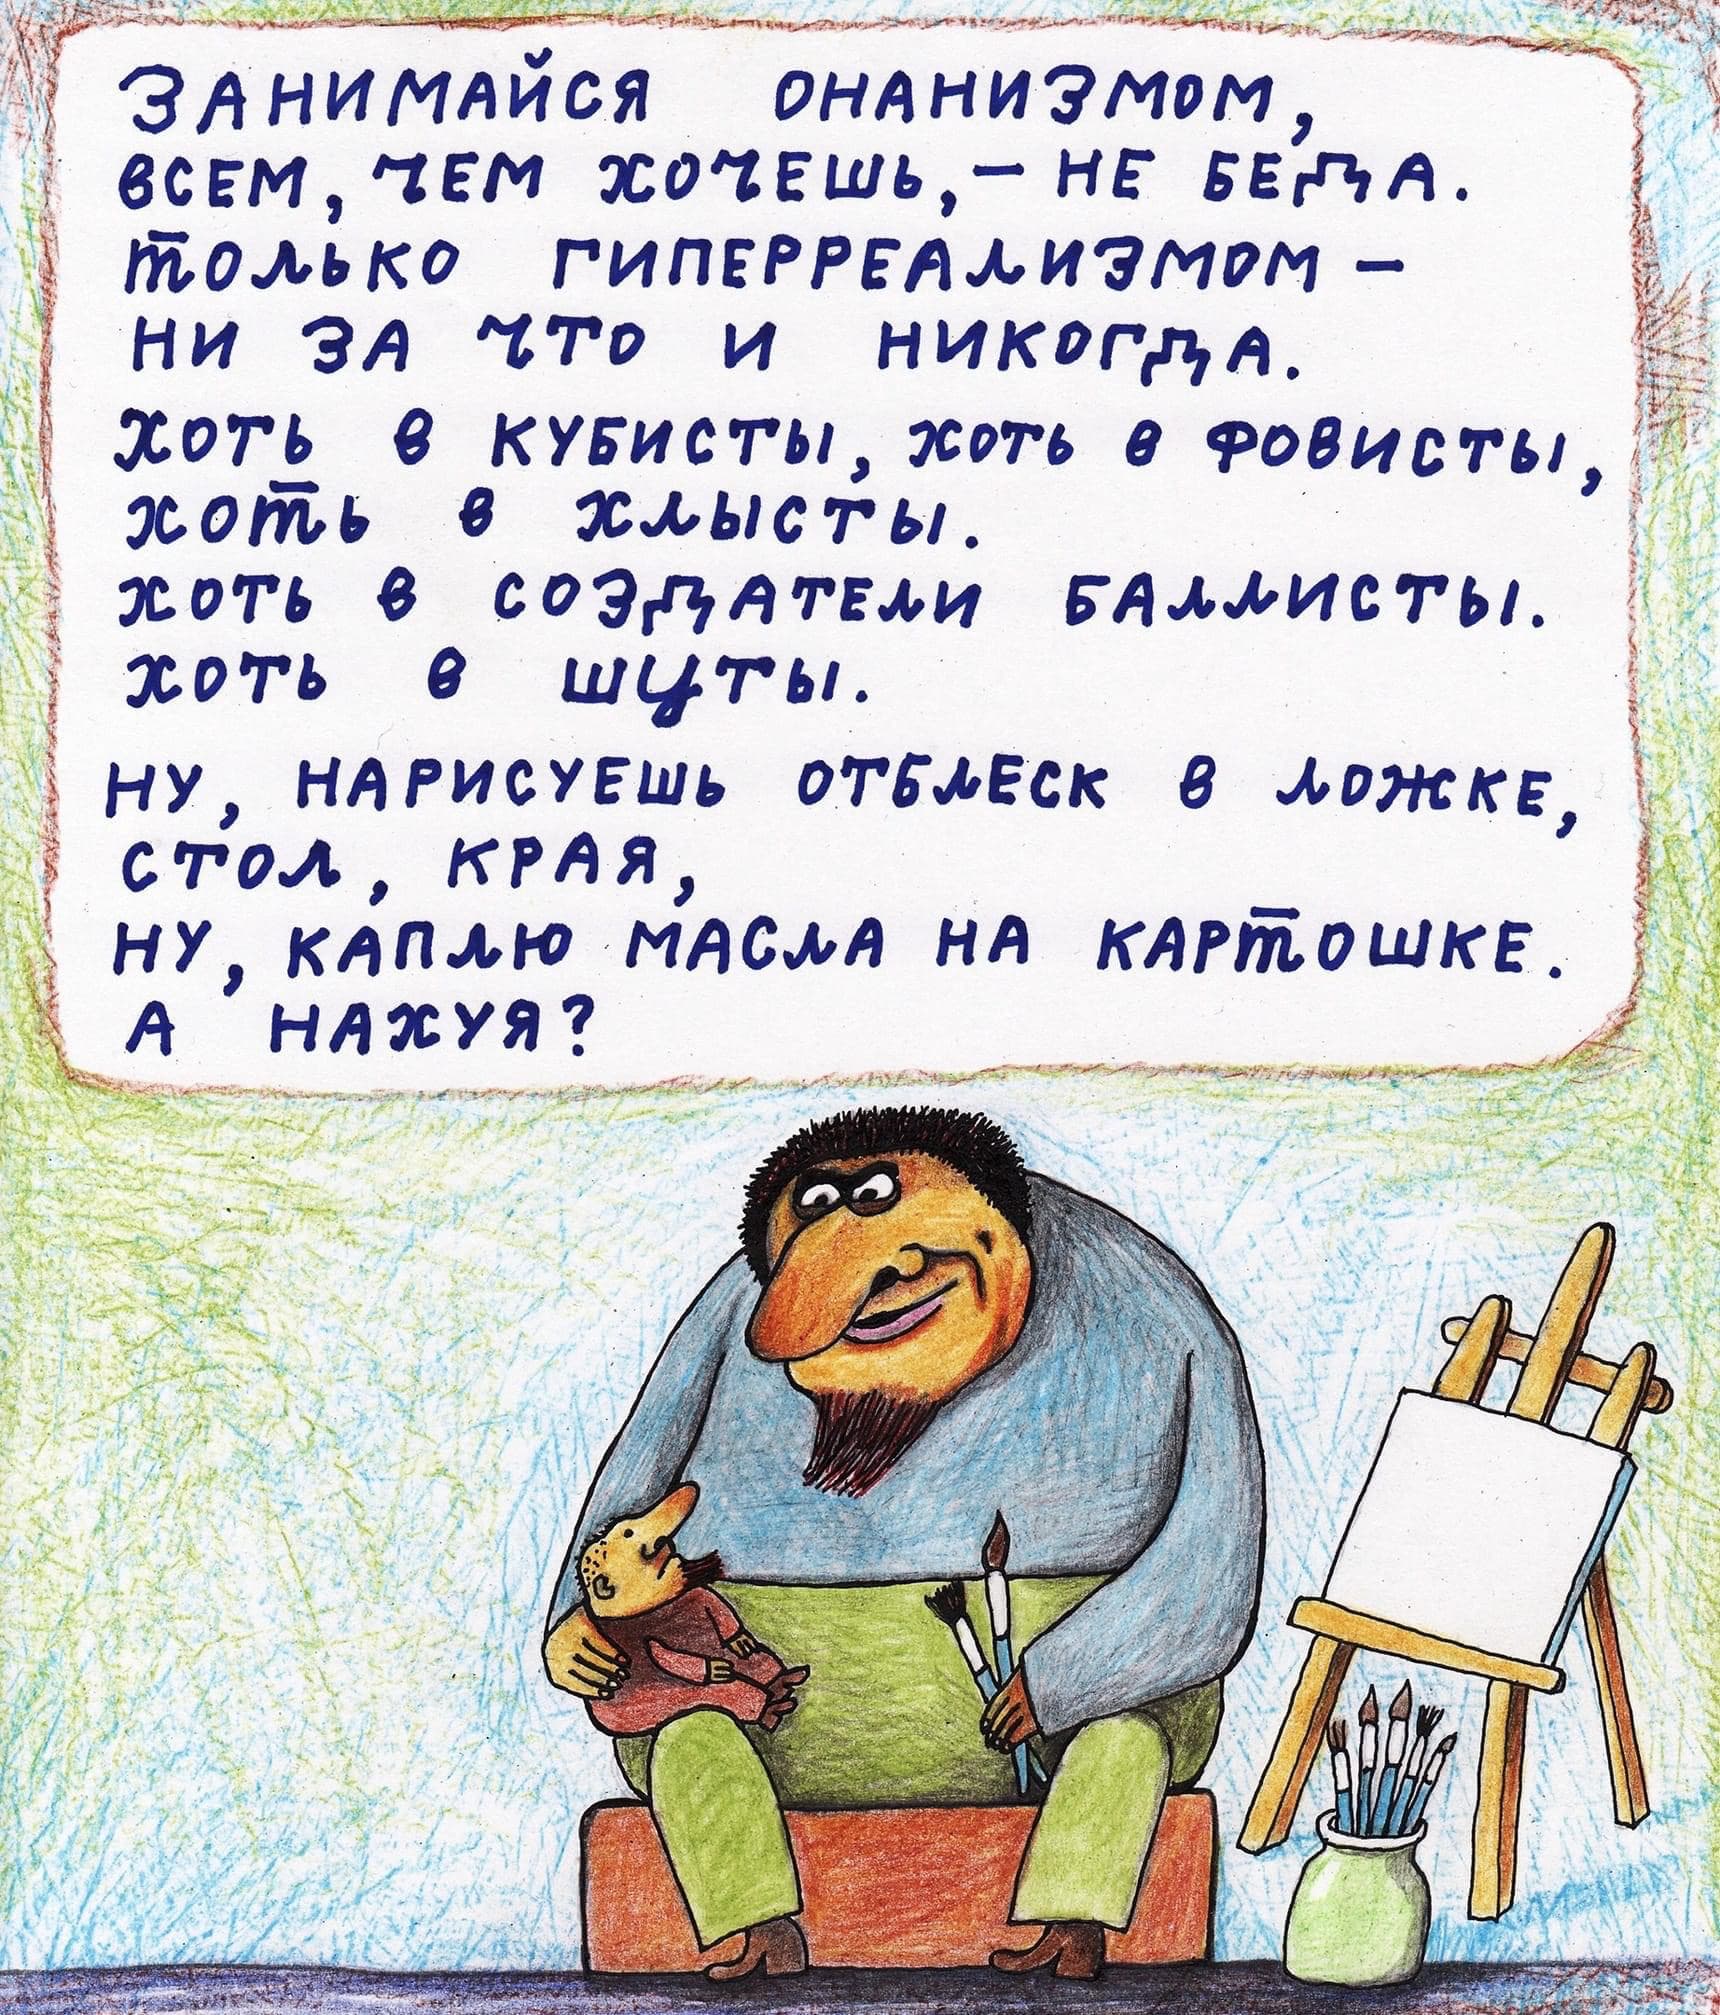 ЗАНИМАЙСЯ ОНАНИЗМОМ,
ВСЕМ, ЧЕМ ХОЧЕШЬ, – НЕ БЕДА.
ТОЛЬКО ГИПЕРРЕАЛИЗМОМ –
НИ ЗА ЧТО И НИКОГДА.
ХОТЬ В КУБИСТЫ, ХОТЬ В ФОВИСТЫ,
ХОТЬ В ХЛЫСТЫ.
ХОТЬ В СОЗДАТЕЛИ БАЛЛИСТЫ.
ХОТЬ В ШУТЫ.
НУ, НАРИСУЕШЬ ОТБЛЕСК В ЛОЖКЕ,
СТОЛ, КРАЯ,
НУ, КАПЛЮ МАСЛА НА КАРТОШКЕ.
А НАХУЯ?